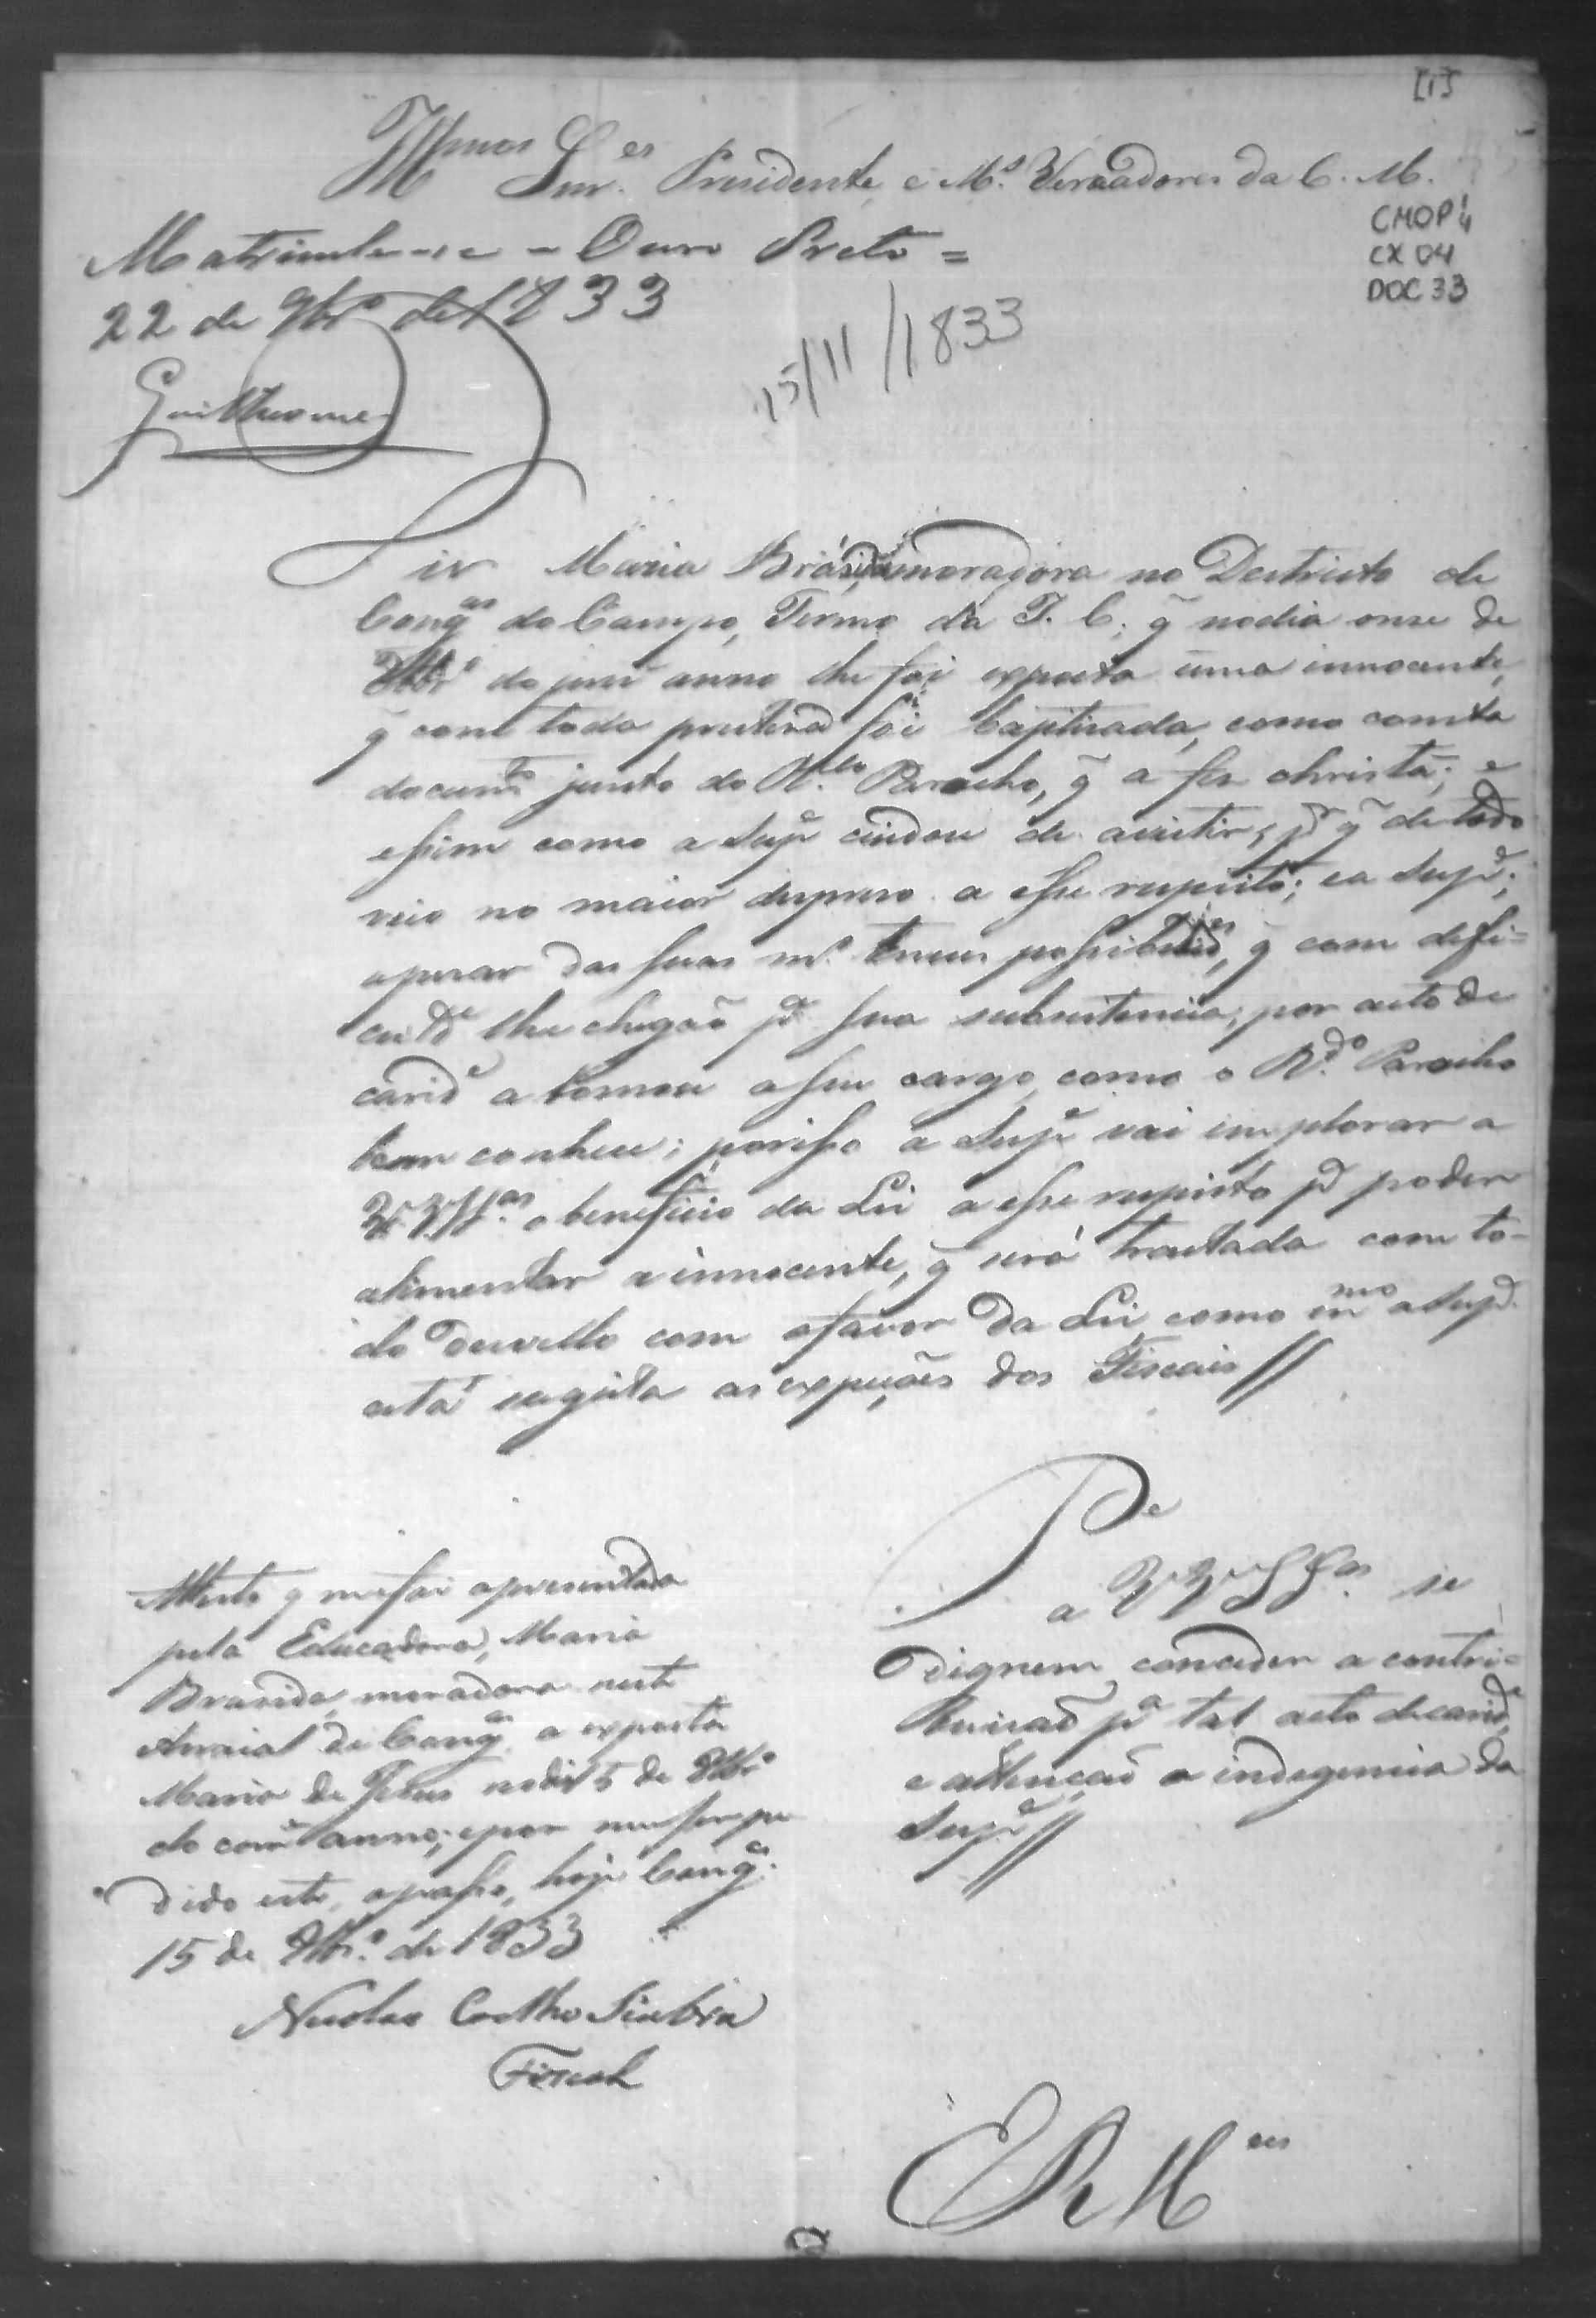 [1]
Illmos Snres Presidente, e Ms. Vereadores da C. M.
CMOP 1/4
CX 04
DOC 33
Matricule-se - Ouro Preto =
22 de 9br.o de 1833
15/11/1833
Guilherme
Diz Maria Brasida moradora no Destricto de
Congas do Campo, Termo da I. C. q̃ no dia onze de
do anno lhe foi exposta uma innocente,
q̃ com toda presteza foi baptizada, como consta
docum.to junto do R.do Parocho, q̃ a fez christã; e
assim como a Sup.e cuidou de assistir, pr q̃ de todo
veio no maior despreso a esse respeito; e a Sup.e;
apesar das suas m.s tenues possibilid.es, q̃ com defi-
culd.e lhe chegão p.a sua subsistencia, por acto de
carid.e a tomou a seu cargo, como o R.do Parocho
bem conhece; porisso a Sup.e vai implorar a
V.V.S.as o beneficio da Lei a esse respeito p.a poder
alimentar a innocente, q̃ será tractada com to-
do desvello com o favor da Lei, como mmo a Sup.e
está sugeita as expeções dos Fiscais //
P.e
a VVSSas. se
dignem conceder a contri-
buição p.a tal acto de carid.e,
e attenção a indegencia da
Sup.e //
Attesto q̃ me foi apresentada
pela Educadora, Maria
Brasida, moradora neste
Arraial de Cong.as a exposta
Maria de Jesus no dia 15 de 9br.o
do corr.e anno; e por me ser pe-
dido este, o passo, hoje Cong.as
15 de 9br.o de 1833
Nicolao Coelho Seabra
Fiscal
E R M.ces